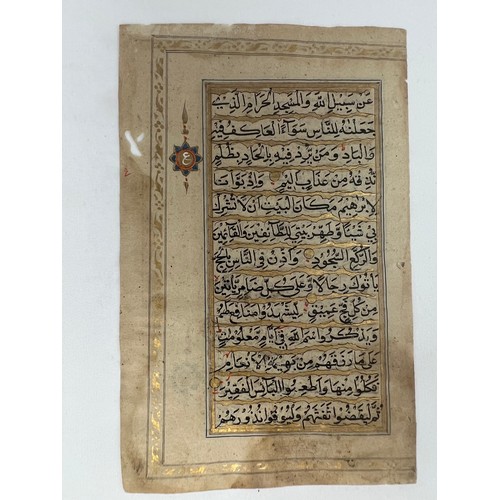 عَن سَبِيلِ اللّٰهِ وَالْمَسْجِدِ الْحَرَامِ الَّذِي
جَعَلْنٰهُ لِلنَّاسِ سَوَآءً الْعَاكِفُ فِيهِ
وَالْبَادِ وَمَن يُرِدْ فِيهِ بِإِلْحَادٍ بِظُلْمٍ
نُذِقْهُ مِنْ عَذَابٍ أَلِيمٍ وَإِذْ بَوَّأْنَا
لِإِبْرٰهِيمَ مَكَانَ الْبَيْتِ أَن لَا تُشْرِكْ
بِي شَيْئًا وَطَهِّرْ بَيْتِيَ لِلطَّآئِفِينَ وَالْقَآئِمِينَ
وَالرُّكَّعِ السُّجُودِ وَأَذِّن فِي النَّاسِ بِالْحَجِّ
يَأْتُوكَ رِجَالًا وَعَلَى كُلِّ ضَامِرٍ يَأْتِينَ
مِن كُلِّ فَجٍّ عَمِيقٍ لِيَشْهَدُوا مَنَافِعَ لَهُمْ
وَيَذْكُرُوا اسْمَ اللّٰهِ فِي أَيَّامٍ مَعْلُومَاتٍ
عَلَى مَا رَزَقَهُمْ مِنْ بَهِيمَةِ الْأَنْعَامِ
فَكُلُوا مِنْهَا وَأَطْعِمُوا الْبَآئِسَ الْفَقِيرَ
ثُمَّ لْيَقْضُوا تَفَثَهُمْ وَلْيُوفُوا نُذُورَهُمْ
ع